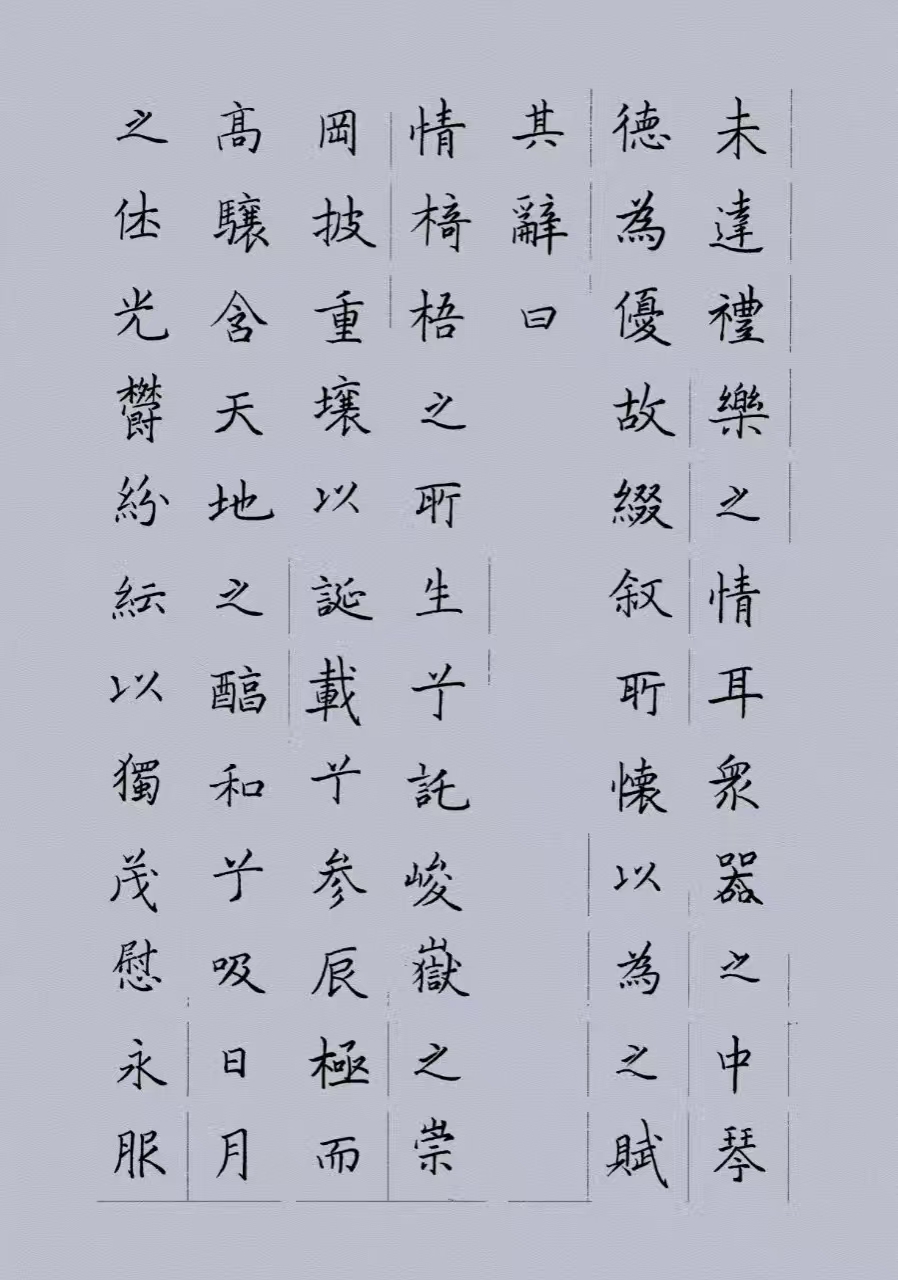 未達禮樂之情耳衆器之中琴
德為優故綴叙所懷以為之賦
其辭曰
情椅梧之所生兮託峻嶽之崇
岡披重壤以誕載兮參辰極而
高驤含天地之醕和兮吸日月
之休光鬱紛紜以獨茂慰永服